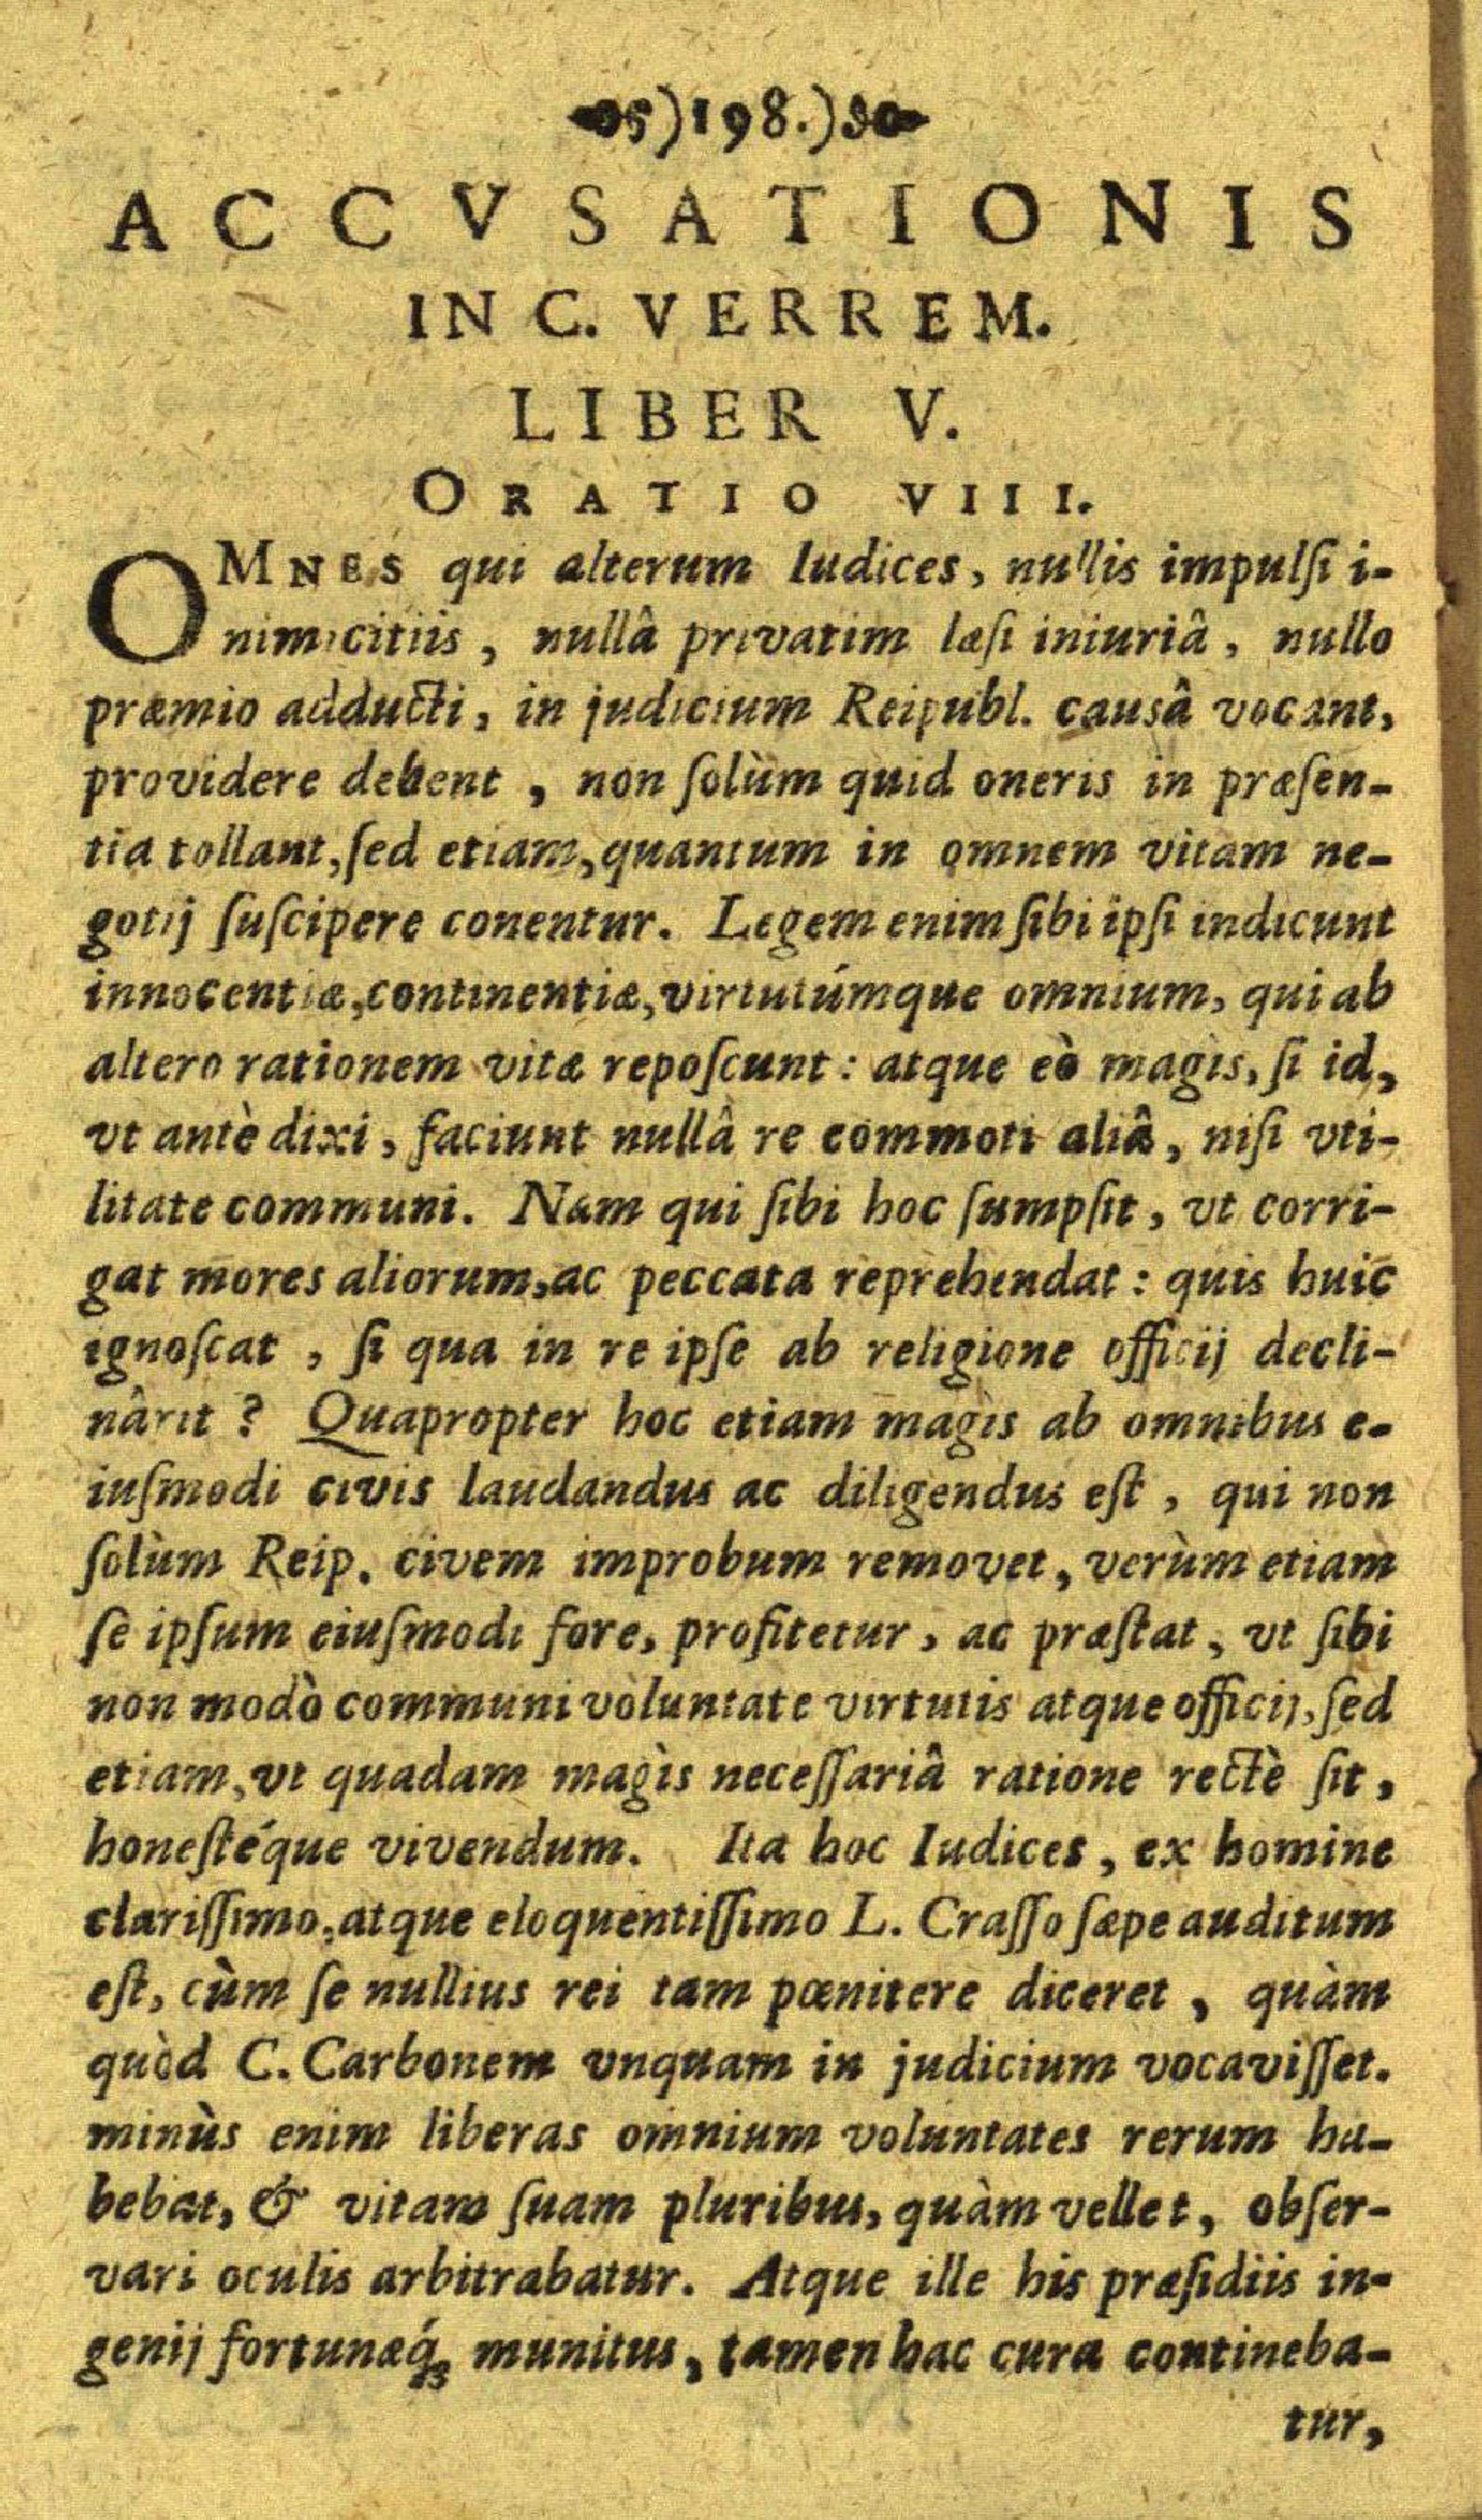 )198.)
ACCVSATIONIS
IN C. VERREM.
LIBER V.
ORATIO VIII.
OMNES qui alterum Iudices, nullis impulſi i-
nimicitiis, nullâ privatim læſi iniuriâ, nullo
præmio adducti, in judicium Reipubl. causâ vocant,
providere debent, non ſolùm quid oneris in præſen-
tia tollant, ſed etiam, quantum in omnem vitam ne-
gotij ſuſcipere conentur. Legem enim ſibi ipſi indicunt
innocentiæ, continentiæ, virtutúmque omnium, qui ab
altero rationem vitæ repoſcunt: atque eò magìs, ſi id,
vt antè dixi, faciunt nullâ re commoti aliâ, niſi vti-
litate communi. Nam qui ſibi hoc ſumpſit, vt corri-
gat mores aliorum, ac peccata reprehendat: quis huic
ignoſcat, ſi qua in re ipſe ab religione officij decli-
nârit? Quapropter hoc etiam magìs ab omnibus e-
iuſmodi civis laudandus ac diligendus eſt, qui non
ſolùm Reip. civem improbum removet, verùm etiam
ſe ipſum eiuſmodi fore, profitetur, ac præſtat, vt ſibi
non modò communi voluntate virtutis atque officij, ſed
etiam, vt quadam magìs neceſſariâ ratione rectè ſit,
honeſtéque vivendum. Ita hoc Iudices, ex homine
clariſſimo, atque eloquentiſſimo L. Craſſo ſæpe auditum
eſt, cùm ſe nullius rei tam pœnitere diceret, quàm
quòd C. Carbonem vnquam in judicium vocaviſſet.
minùs enim liberas omnium voluntates rerum ha-
bebat, & vitam ſuam pluribus, quàm vellet, obſer-
vari oculis arbitrabatur. Atque ille his præſidiis in-
genij fortunæq́; munitus, tamen hac cura contineba-
tur,